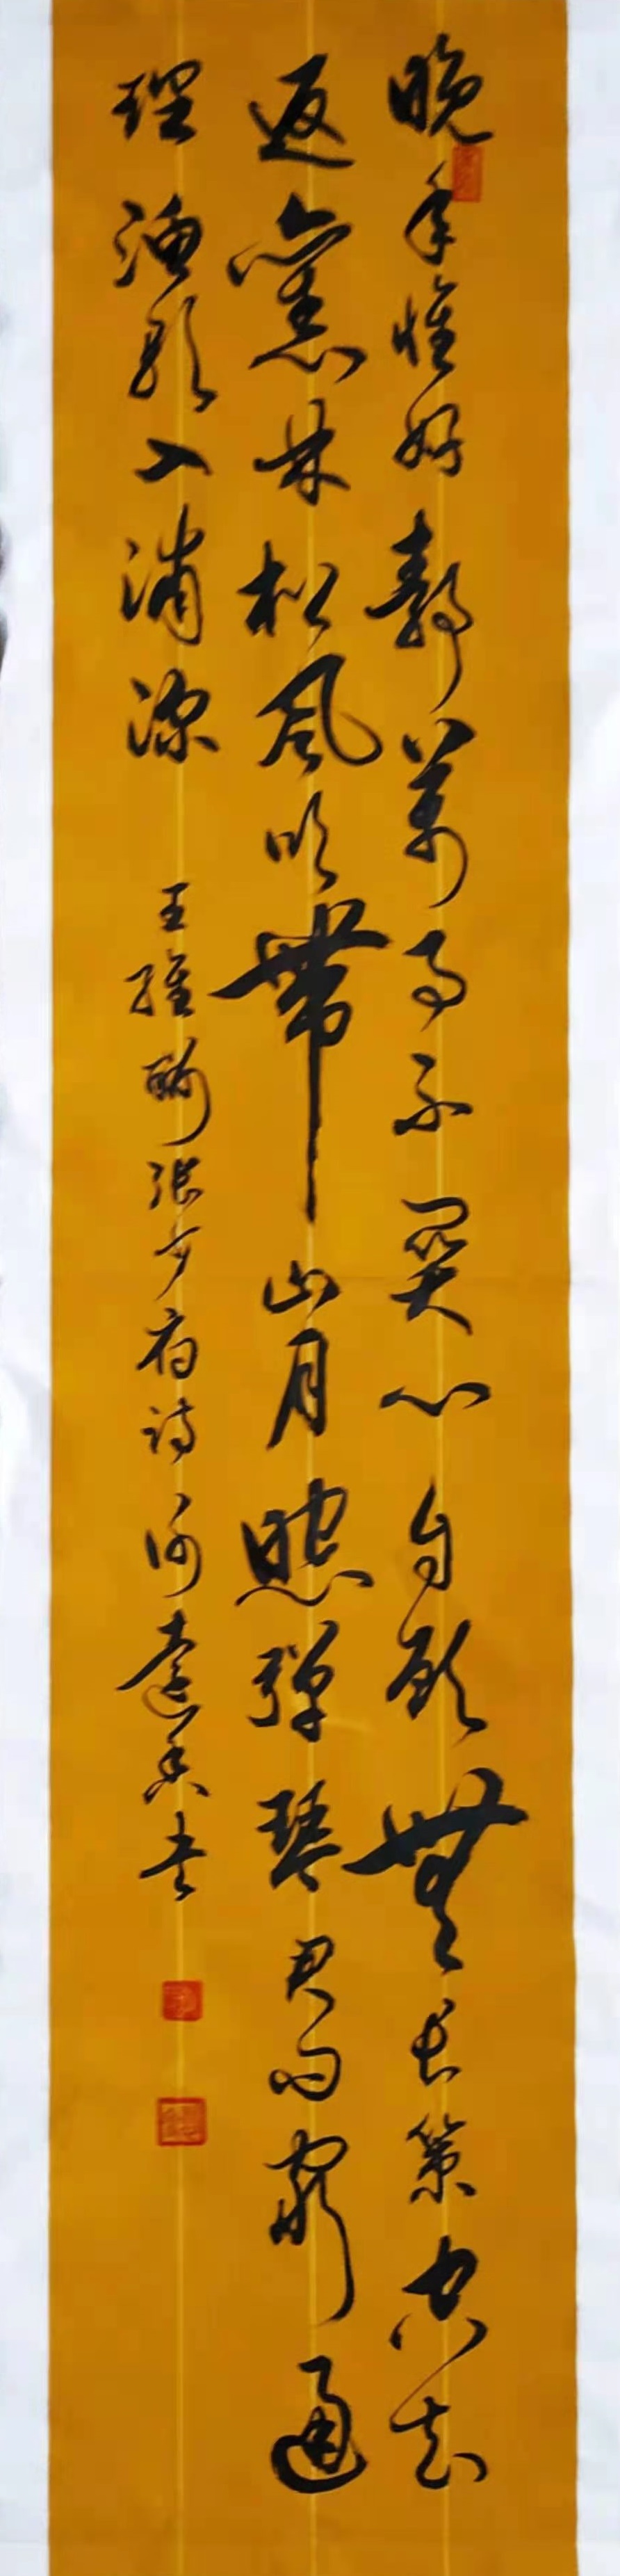 晚年惟好靜萬事不關心自顧無長策空知
返舊林松風吹帶山月照彈琴君問窮通
理漁歌入浦深 王維酬張少府詩 書